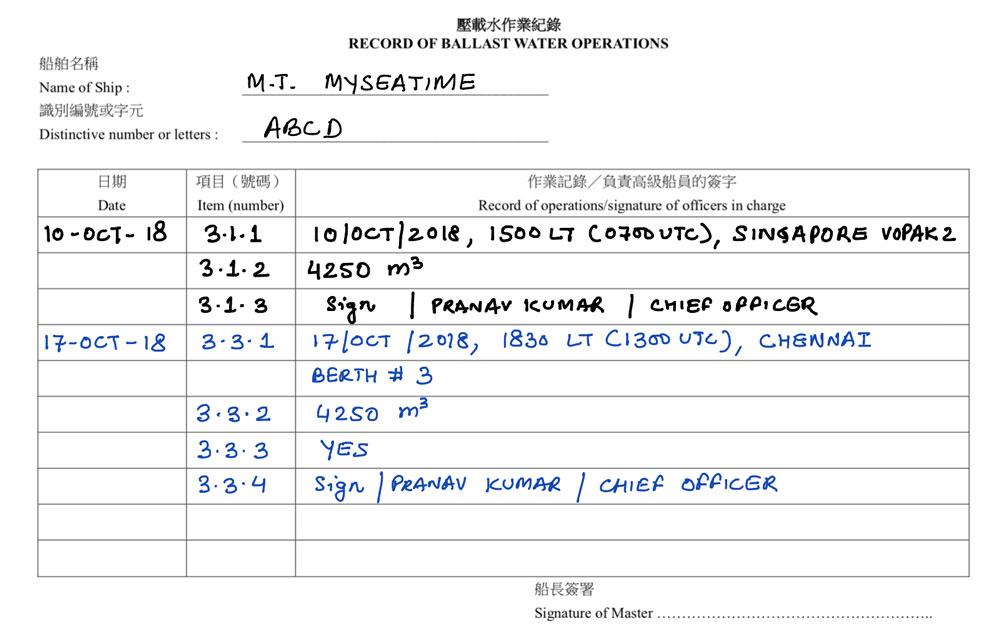 壓載水作業紀錄
RECORD OF BALLAST WATER OPERATIONS
船舶名稱
Name of Ship : M.T. MYSEATIME
識別編號或字元
Distinctive number or letters : ABCD
日期 項目（號碼） 作業記錄／負責高級船員的簽字
Date Item (number) Record of operations/signature of officers in charge
10-OCT-18 3.1.1 10/OCT/2018, 1500 LT (0700 UTC), SINGAPORE VOPAK2
3.1.2 4250 m³
3.1.3 Sign | PRANAV KUMAR | CHIEF OFFICER
17-OCT-18 3.3.1 17/OCT/2018, 1830 LT (1300 UTC), CHENNAI
BERTH # 3
3.3.2 4250 m³
3.3.3 YES
3.3.4 Sign | PRANAV KUMAR / CHIEF OFFICER
船長簽署
Signature of Master ………………………………………………..